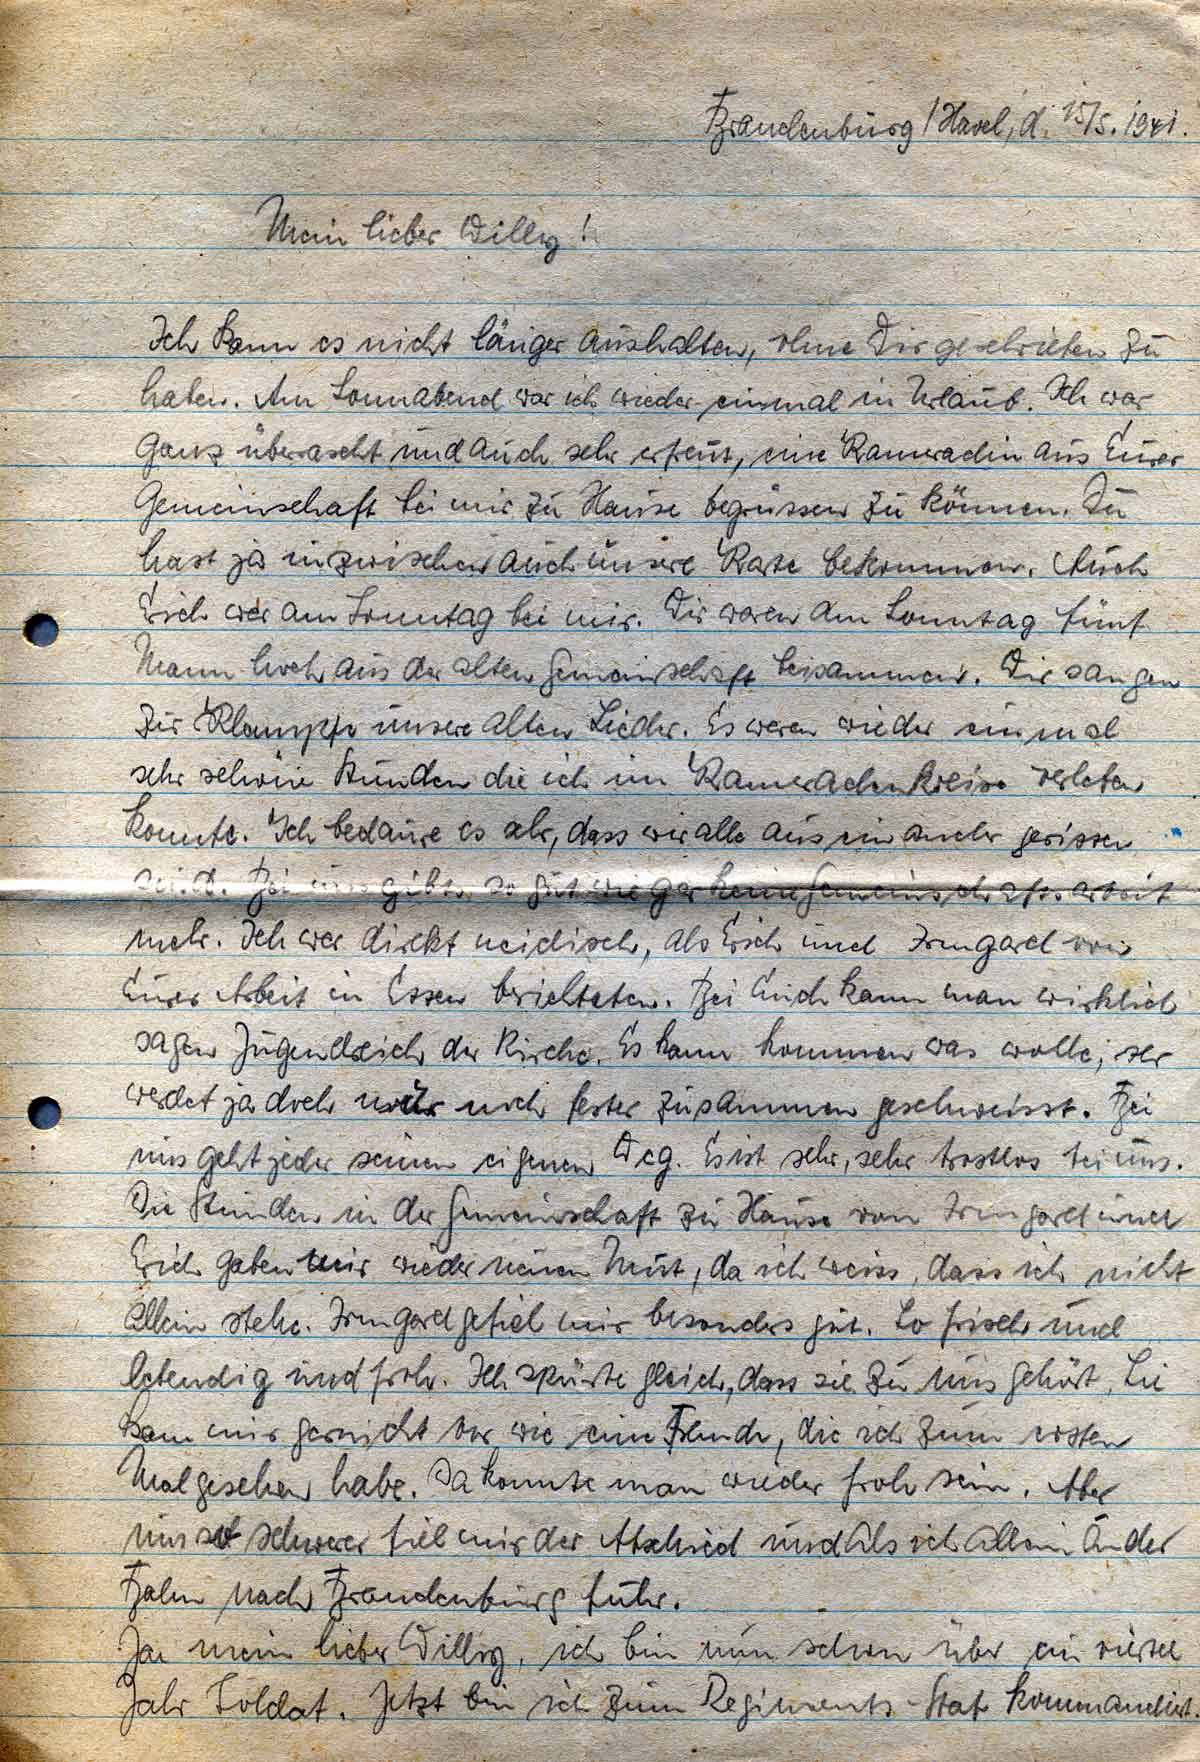 Brandenburg/Havel, d. 15/5. 1941.
Mein lieber Willy!
Ich kann es nicht länger aushalten, ohne Dir geschrieben zu
haben. Am Sonnabend war ich wieder einmal in Urlaub. Ich war
ganz überrascht und auch sehr erfreut, eine Kameradin aus Eurer
Gemeinschaft bei mir zu Hause begrüssen zu können. Du
hast ja inzwischen auch unsere Karte bekommen. Auch
Erich war am Sonntag bei mir. Wir waren am Sonntag fünf
Mann hoch aus der alten Gemeinschaft beisammen. Wir sangen
zur Klampfe unsere alten Lieder. Es waren wieder einmal
sehr schöne Stunden die ich im Kameradenkreise verleben
konnte. Ich bedaure es sehr, dass wir alle auseinander gerissen
sind. Bei uns gibt es so gut wie gar keine Gemeinschaftsarbeit
mehr. Ich war direkt neidisch, als Erich und Irmgard von
Eurer Arbeit in Essen berichteten. Bei Euch kann man wirklich
sagen Jugendreich der Kirche. Es kann kommen was wolle, Ihr
werdet ja doch nur noch fester zusammen geschweisst. Bei
uns geht jeder seinen eigenen Weg. Es ist sehr, sehr trostlos bei uns.
Die Stunden in der Gemeinschaft zu Hause von Irmgard und
Erich gaben mir wieder neuen Mut, da ich weiss, dass ich nicht
allein stehe. Irmgard gefiel mir besonders gut. So frisch und
lebendig und froh. Ich spürte gleich, dass sie zu uns gehört. Sie
kam mir garnicht vor wie eine Fremde, die ich zum ersten
Mal gesehen habe. Da konnte man wieder froh sein. Aber
um so schwerer fiel mir der Abschied und als ich allein in der
Bahn nach Brandenburg fuhr.
Ja mein lieber Willy, ich bin nun schon über ein viertel
Jahr Soldat. Jetzt bin ich zum Regiments-Stab kommandiert.